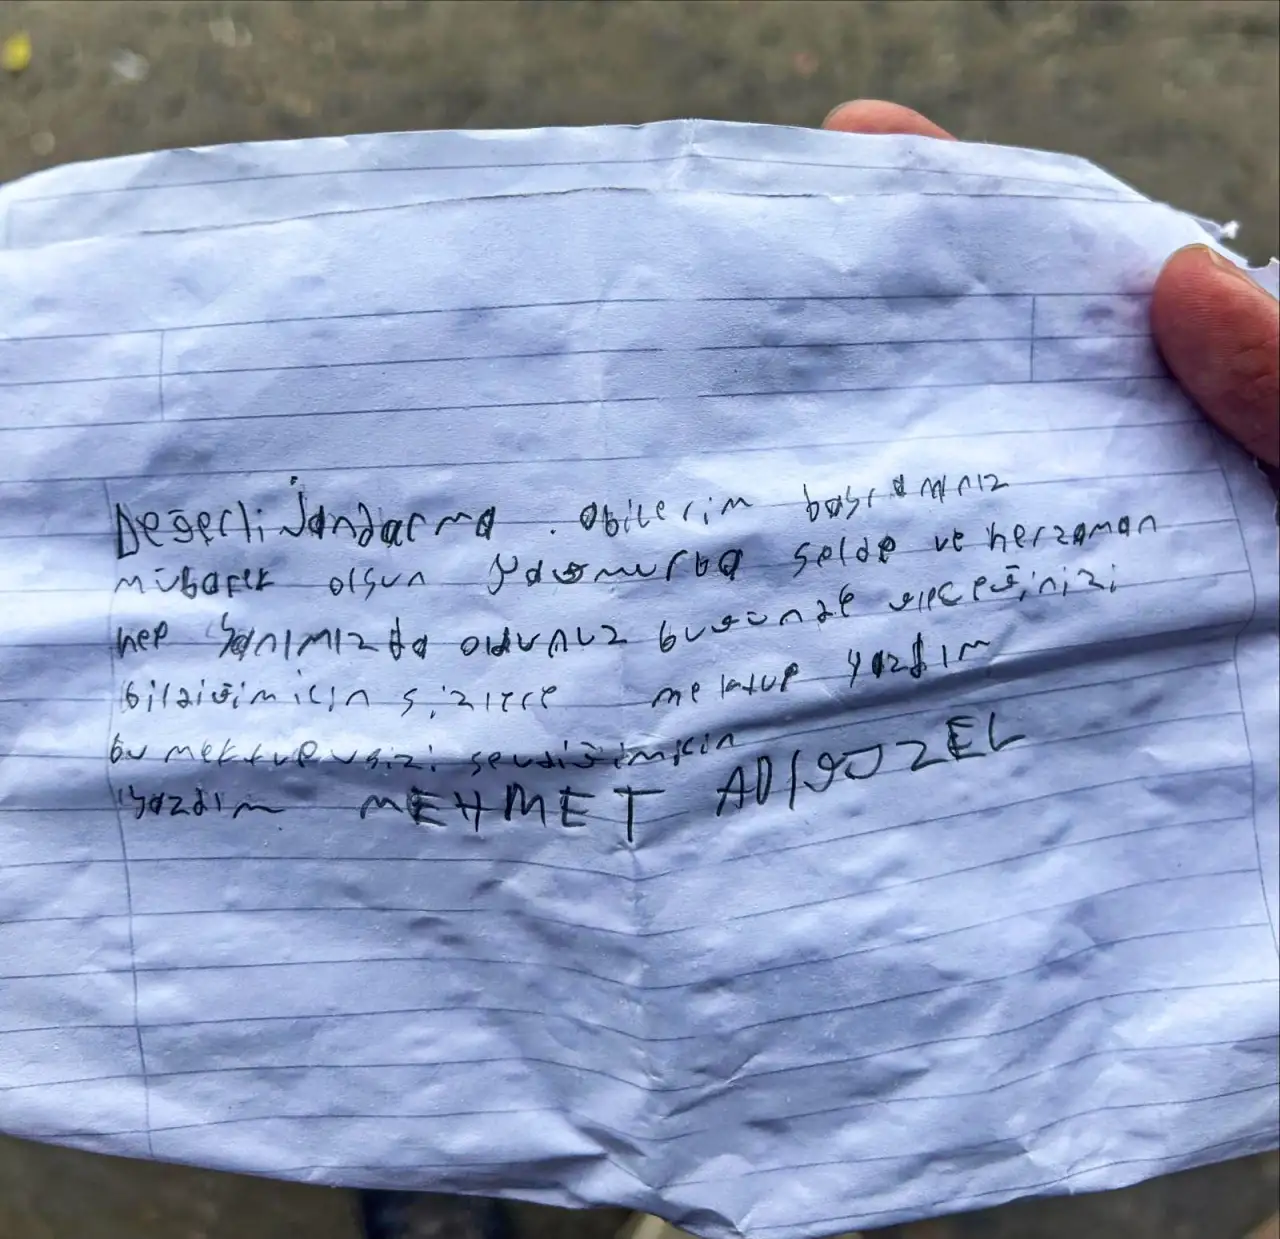 Değerli Jandarma . abilerim bayramınız
mübarek olsun yağmurda selde ve herzaman
hep yanımızda oldunuz bugünde geleceğinizi
bildiğim için sizlere mektup yazdım
bu mektubu sizi sevdiğim için
yazdım MEHMET ADIGÜZEL